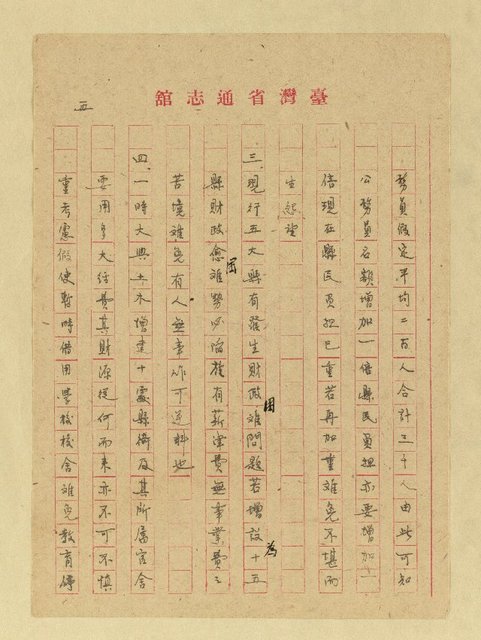 臺灣省通志館
五
務員假定平均二百人合計三千人由此可知
公務員名額增加一倍縣民負担亦要增加一
倍現在縣民負担已重若再加重難免不堪而
生怨望
三、現行五大縣有發生財政困難問題若增設十五
縣財政愈為困難勢必陷於有薪津費無事業費之
苦境難免有人無事作可逆料也
四、一時大興土木增建十處縣衙及其所屬官舍
要用多大經費其財源從何而來亦不可不慎
重考慮假使暫時借用學校校舍難免教育停